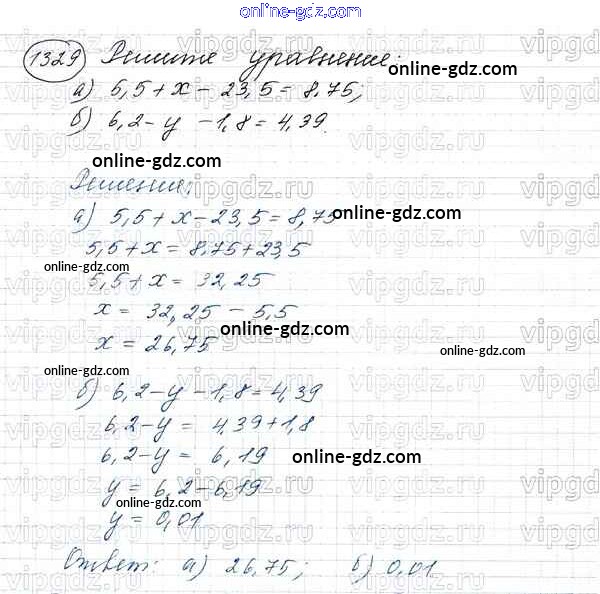 online-gdz.com
1329 Решите уравнение:
а) 5,5 + x - 23,5 = 8,75;
online-gdz.com
б) 6,2 - y - 1,8 = 4,39.
online-gdz.com
Решение:
а) 5,5 + x - 23,5 = 8,75
online-gdz.com
5,5 + x = 8,75 + 23,5
online-gdz.com
5,5 + x = 32,25
x = 32,25 - 5,5
online-gdz.com
x = 26,75
online-gdz.com
б) 6,2 - y - 1,8 = 4,39
6,2 - y = 4,39 + 1,8
6,2 - y = 6,19
online-gdz.com
y = 6,2 - 6,19
online-gdz.com
y = 0,01
Ответ: а) 26,75; б) 0,01
vipgdz.ru